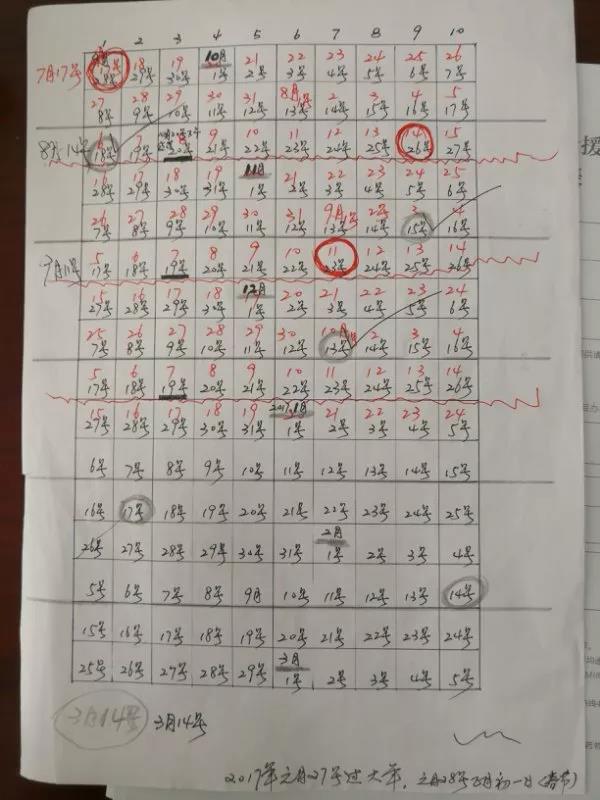 1 2 3 4 5 6 7 8 9 10
7月17号
18 19 10月 21 22 23 24 25 26
29号 30号 1号 2号 3号 4号 5号 6号 7号
27 28 29 30 31 8月1号 2 3 4 5
8号 9号 10号 11号 12号 13号 14号 15号 16号 17号
8月14号
9 10 11 12 13 14 15
18号 19号 20号 21号 22号 23号 24号 25号 26号 27号
16 17 18 19 11月 21 22 23 24 25
28号 29号 30号 31号 1号 2号 3号 4号 5号 6号
26 27 28 29 30 31 9月1号 2 3 4
7号 8号 9号 10号 11号 12号 13号 14号 15号 16号
9月11号
5 6 7 8 9 10 11 12 13 14
17号 18号 19号 20号 21号 22号 23号 24号 25号 26号
15 16 17 18 12月 20 21 22 23 24
27号 28号 29号 30号 1号 2号 3号 4号 5号 6号
25 26 27 28 29 30 10月1号 2 3 4
7号 8号 9号 10号 11号 12号 13号 14号 15号 16号
5 6 7 8 9 10 11 12 13 14
17号 18号 19号 20号 21号 22号 23号 24号 25号 26号
15 16 17 18 19 2017.1月 21 22 23 24
27号 28号 29号 30号 31号 1号 2号 3号 4号 5号
6号 7号 8号 9号 10号 11号 12号 13号 14号 15号
16号 17号 18号 19号 20号 21号 22号 23号 24号 25号
2月
26号 27号 28号 29号 30号 31号 1号 2号 3号 4号
5号 6号 7号 8号 9月 10号 11号 12号 13号 14号
15号 16号 17号 18号 19号 20号 21号 22号 23号 24号
3月
25号 26号 27号 28号 29号 1号 2号 3号 4号 5号
3月14号 3月14号
2017年元月27号过大年，元月28号正月初一日(春节)
援